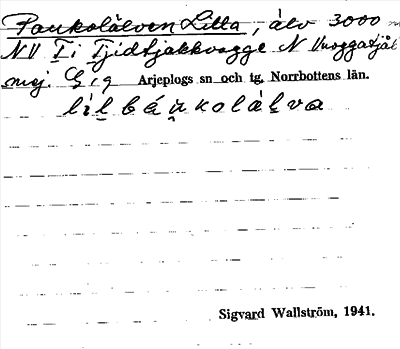 Paukolälven Lilla, älv 3000 m
NV Ti Tjidtjakkvagge N Vuoggatjål
msj. G i g Arjeplogs sn och tg, Norrbottens län.
lil ba u kolalva
Sigvard Wallström, 1941.